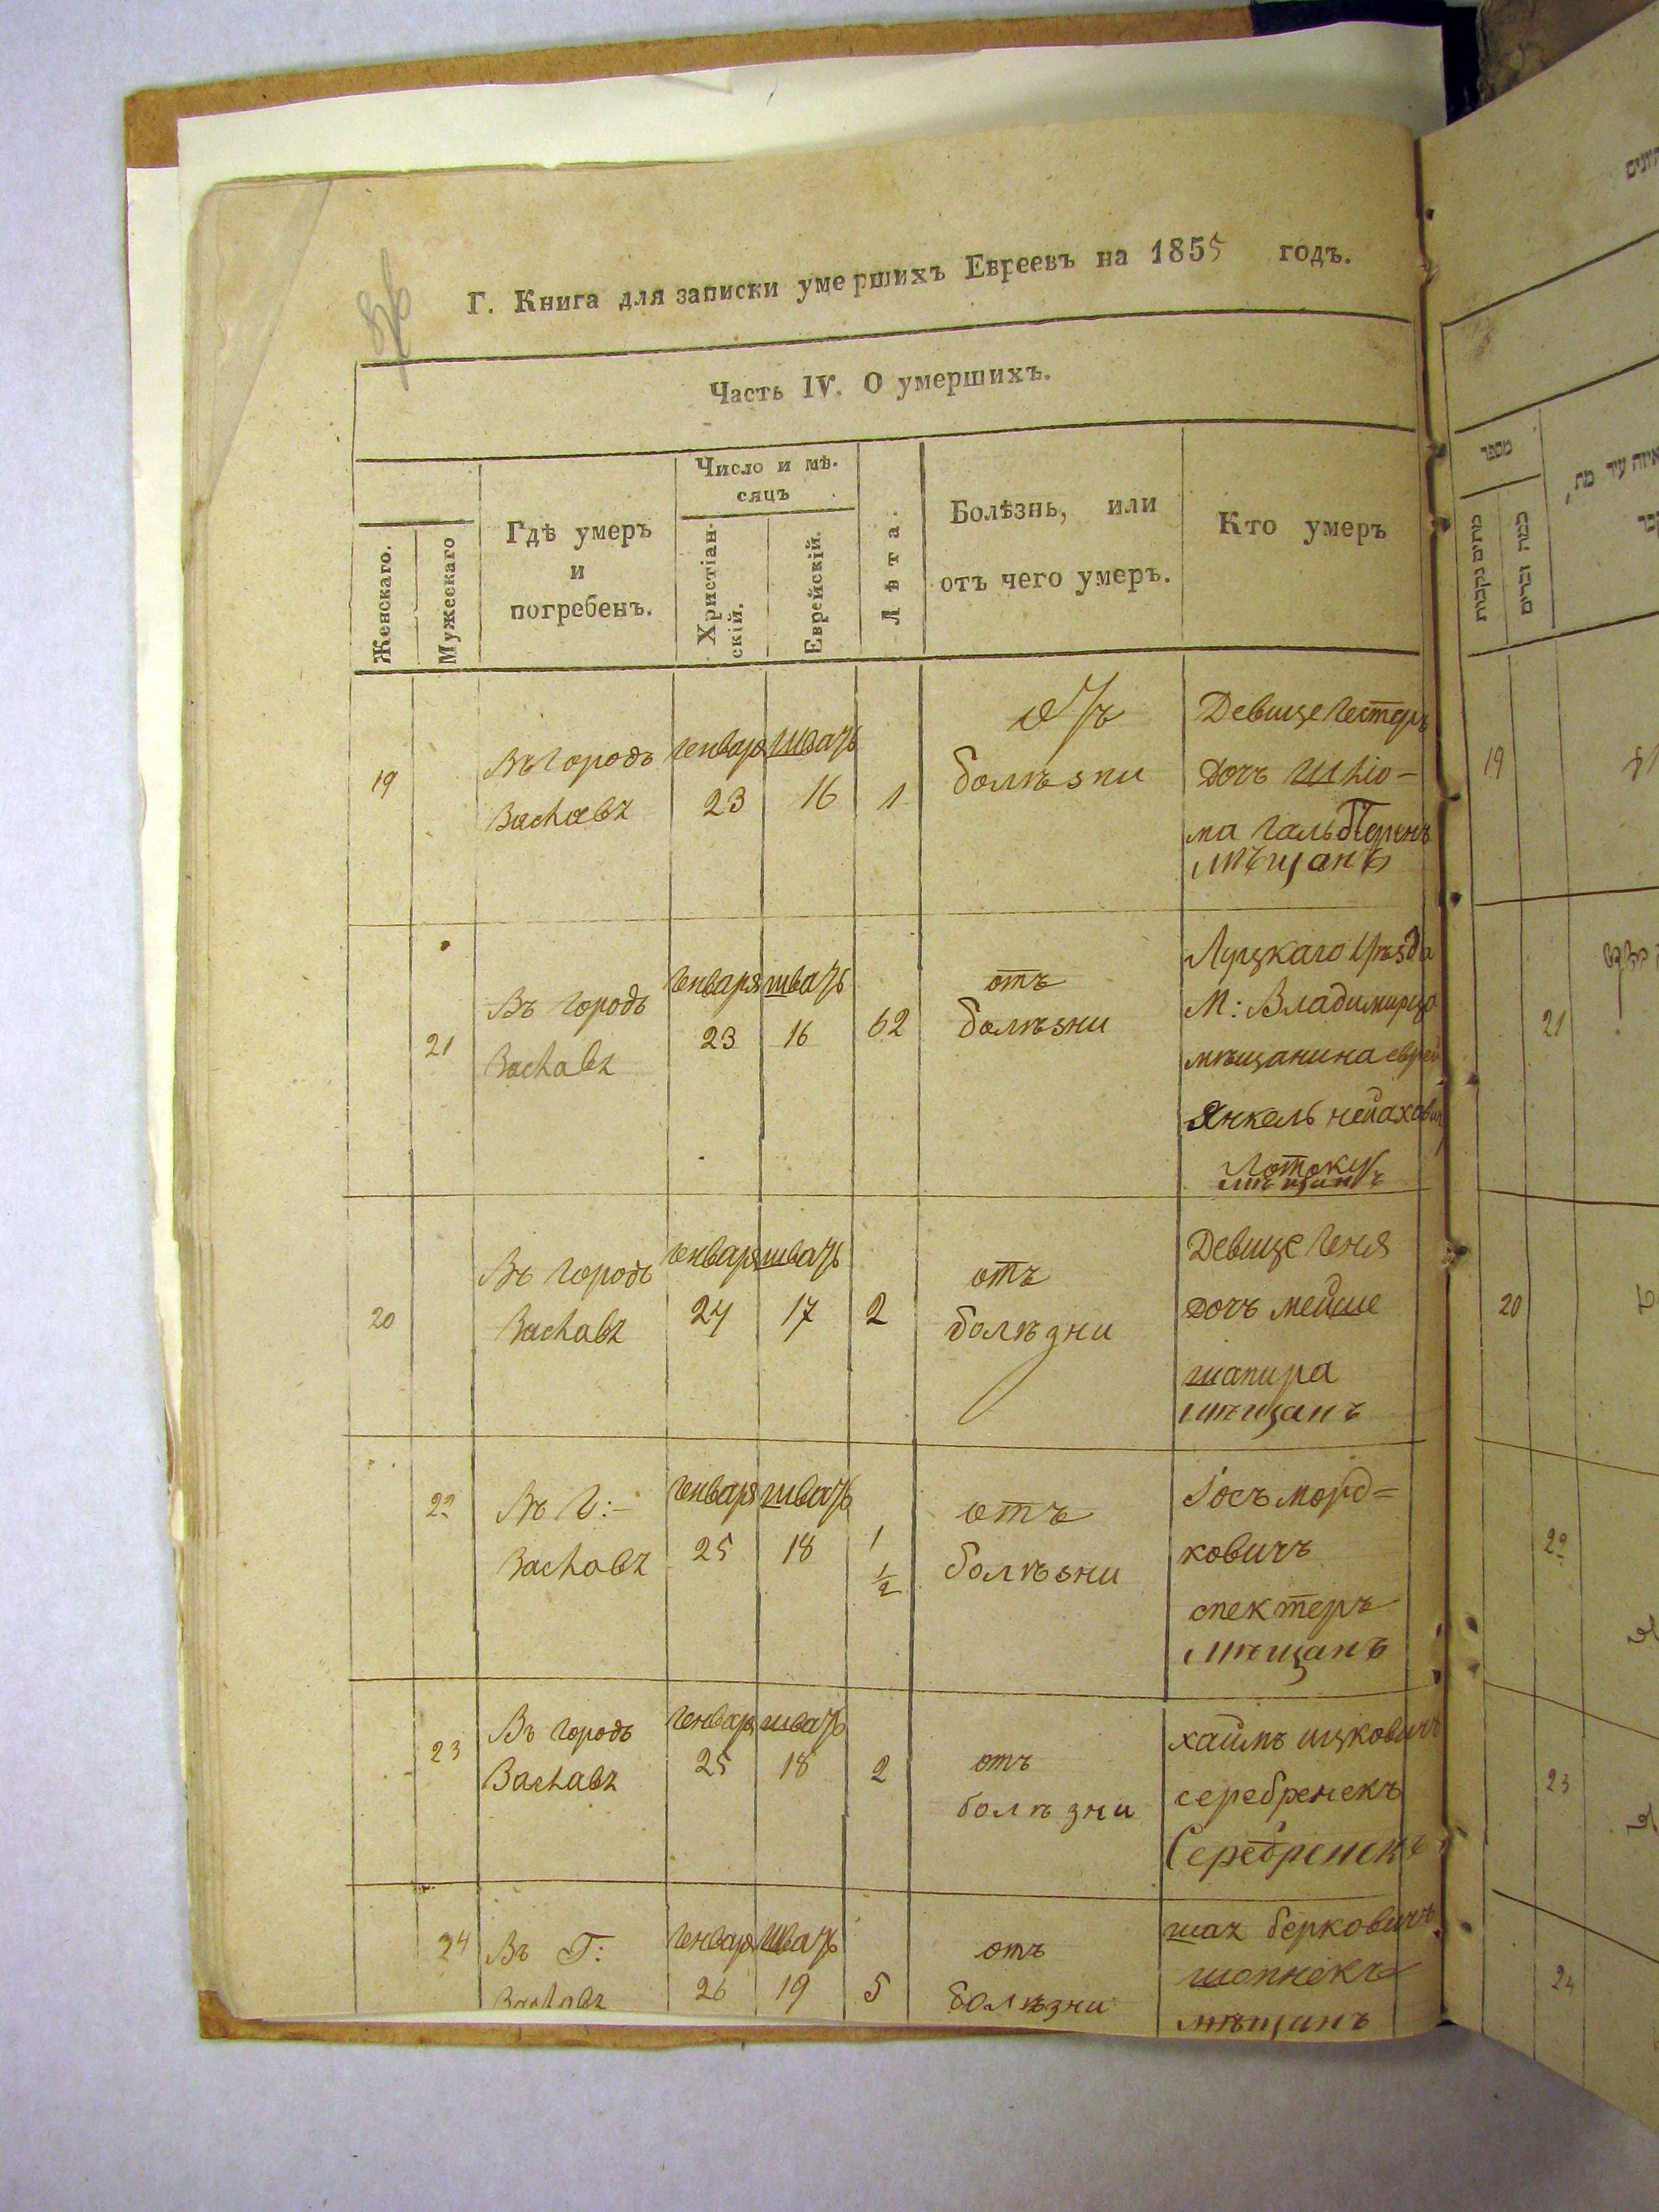 Г. Книга для записки умершихъ Евреевъ на 1855 годъ.
Часть IV. О умершихъ.
Женскаго.
Мужескаго
Гдѣ умеръ
и
погребенъ.
Число и мѣ-
сяцъ
Христіан-
скій.
Еврейскій.
Лѣта.
Болѣзнь, или
отъ чего умеръ.
Кто умеръ
19
Въ городъ
Заславъ
генваря
23
шватъ
16
1
отъ
болѣзни
Девице Гестеръ
дочъ Шлю-
ма Гальперинъ
мѣщанъ
21
Въ городъ
Заславъ
Генваря
23
шватъ
16
62
отъ
болѣзни
Луцкаго Уѣзда
М: Владимирца
мѣщанина еврей
Янкель
мѣщанъ
20
Въ городъ
Заславъ
генваря
24
шватъ
17
2
отъ
болѣзни
Девице Геня
дочъ мейше
шапира
мѣщанъ
22
Въ Г:-
Заславъ
Генваря
25
шватъ
18
1
1/2
отъ
болѣзни
Іосъ морд=
ковичъ
спектеръ
мѣщанъ
23
Въ городъ
Заславъ
Генваря
25
шватъ
18
2
отъ
болѣзни
хаимъ ицковичъ
серебренекъ
Серебренекъ
24
Въ Г:
Заславъ
Генваря
26
шватъ
19
5
отъ
болѣзни
беркович
мѣщанъ
מספר
19
21
20
22
23
24